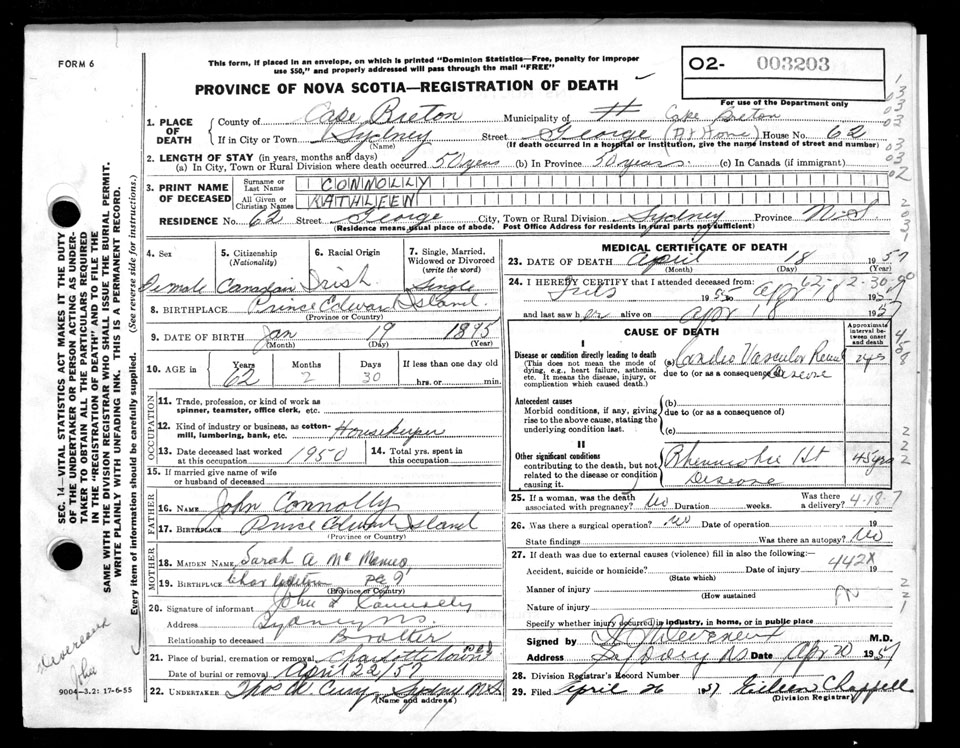 FORM 6
This form, if placed in an envelope, on which is printed "Dominion Statistics—Free, penalty for improper
use $50," and properly addressed will pass through the mail "FREE"
O2- 003203
PROVINCE OF NOVA SCOTIA—REGISTRATION OF DEATH
For use of the Department only
1. PLACE OF DEATH
County of Cape Breton Municipality of Cape Breton
If in City or Town Sydney Street George (At Home) House No. 62
(Name) (If death occurred in a hospital or institution, give the name instead of street and number)
2. LENGTH OF STAY (in years, months and days)
(a) In City, Town or Rural Division where death occurred 50 years (b) In Province 50 years. (c) In Canada (if immigrant)
3. PRINT NAME OF DECEASED
Surname or Last Name CONNOLLY
All Given or Christian Names KATHLEEN
RESIDENCE No. 62 Street George City, Town or Rural Division Sydney Province N.S.
(Residence means usual place of abode. Post Office Address for residents in rural parts not sufficient)
4. Sex
Female
5. Citizenship
(Nationality)
Canadian
6. Racial Origin
Irish
7. Single, Married,
Widowed or Divorced
(write the word)
Single
8. BIRTHPLACE Prince Edward Island.
(Province or Country)
9. DATE OF BIRTH Jan 19 1895
(Month) (Day) (Year)
10. AGE in
Years Months Days If less than one day old
62 2 30 hrs. or min.
OCCUPATION
11. Trade, profession, or kind of work as
spinner, teamster, office clerk, etc.
12. Kind of industry or business, as cotton-
mill, lumbering, bank, etc. Housekeeper
13. Date deceased last worked
at this occupation 1950
14. Total yrs. spent in
this occupation
15. If married give name of wife
or husband of deceased
FATHER
16. NAME John Connolly
17. BIRTHPLACE Prince Edward Island
MOTHER
18. MAIDEN NAME Sarah A
19. BIRTHPLACE
(Province or Country)
20. Signature of informant John Connolly
Address Sydney N.S.
Relationship to deceased Brother
21. Place of burial, cremation or removal Charlottetown P.E.I.
Date of burial or removal April 22/57
22. UNDERTAKER Sydney N.S.
(Name and address)
MEDICAL CERTIFICATE OF DEATH
23. DATE OF DEATH April 18 1957
(Month) (Day) (Year)
24. I HEREBY CERTIFY that I attended deceased from:
and last saw her alive on Apr 18 1957
CAUSE OF DEATH
Approximate
interval be-
tween onset
and death
I
Disease or condition directly leading to death
(This does not mean the mode of
dying, e.g., heart failure, asthenia,
etc. It means the disease, injury, or
complication which caused death.)
(a) Cardio Vascular Renal
due to (or as a consequence of) Disease
Antecedent causes
Morbid conditions, if any, giving
rise to the above cause, stating the
underlying condition last.
(b)
due to (or as a consequence of)
(c)
II
Other significant conditions
contributing to the death, but not
related to the disease or condition
causing it.
Rheumatic Ht
Disease
45 yrs
25. If a woman, was the death
associated with pregnancy? No Duration weeks. Was there
a delivery?
4-18-7
26. Was there a surgical operation? No Date of operation 19
State findings Was there an autopsy? No
27. If death was due to external causes (violence) fill in also the following:—
Accident, suicide or homicide? Date of injury 19
(State which)
442X
Manner of injury
(How sustained
Nature of injury
Specify whether injury occurred in industry, in home, or in public place
Signed by M.D.
Address Sydney NS Date Apr 20 1957
28. Division Registrar's Record Number
29. Filed April 26 1957 Eileen Chappell
(Division Registrar)
SEC. 14—VITAL STATISTICS ACT MAKES IT THE DUTY
OF THE UNDERTAKER OR PERSON ACTING AS UNDER-
TAKER TO OBTAIN ALL THE PARTICULARS REQUIRED
IN THE "REGISTRATION OF DEATH" AND TO FILE THE
SAME WITH THE DIVISION REGISTRAR WHO SHALL ISSUE THE BURIAL PERMIT.
WRITE PLAINLY WITH UNFADING INK. THIS IS A PERMANENT RECORD.
Every item of information should be carefully supplied. (See reverse side for instructions.)
Devereaux
John
9004-3.2: 17-6-55